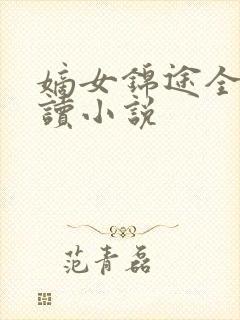 嫡女錦途全
讀小説
范青磊